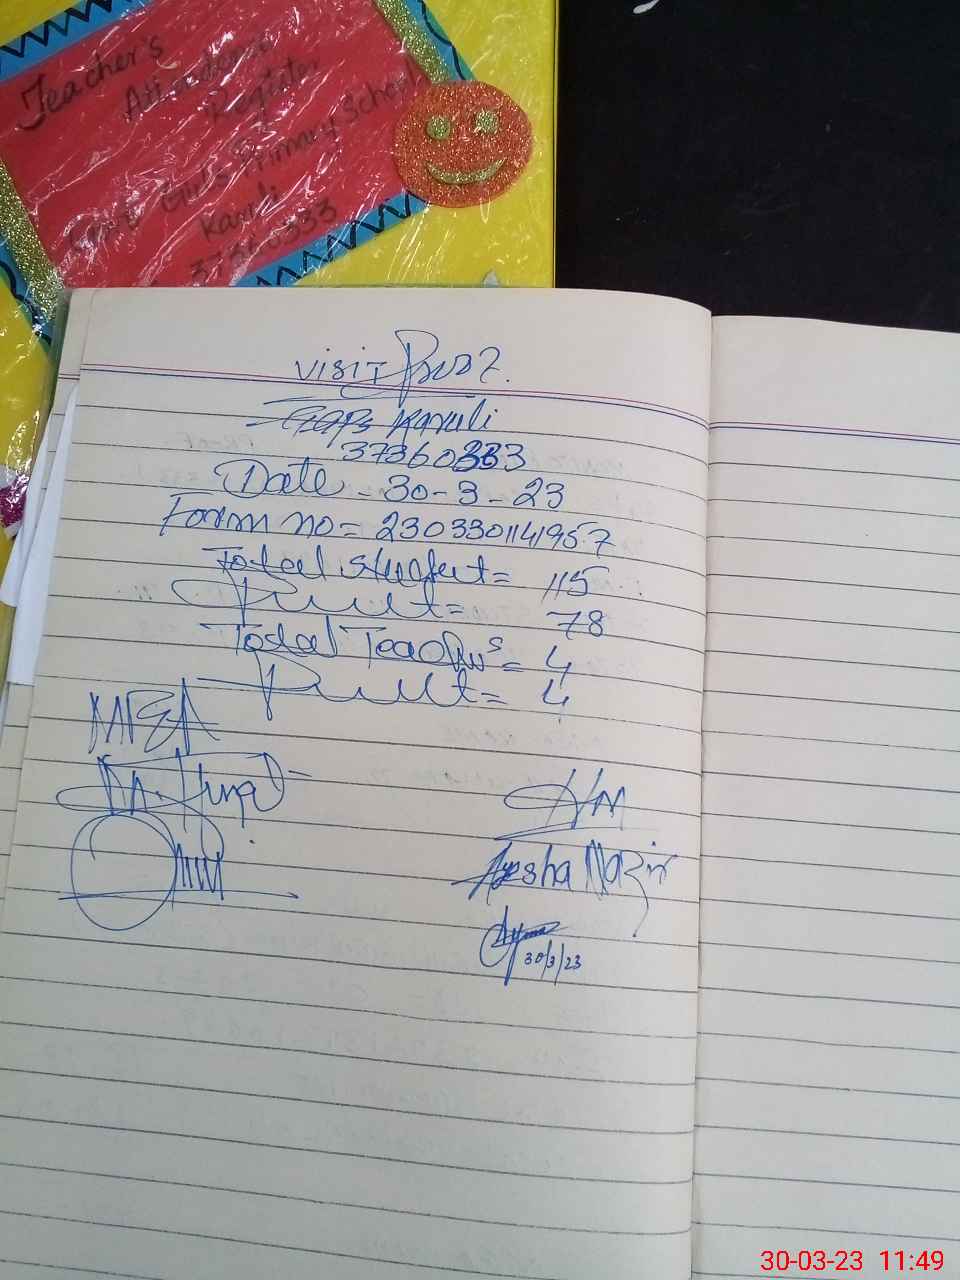 Teacher's
Attendance
Register
Govt Girls Primary School
Karuli
37360333
VISIT Proof.
GGPS Karuli
37360333
Date - 30-3-23
Form no = 230330114195.7
Total student = 115
Present = 78
Total Teachers = 4
Present = 4
MEA
HM
Ayesha Nazir
30/3/23
30-03-23 11:49